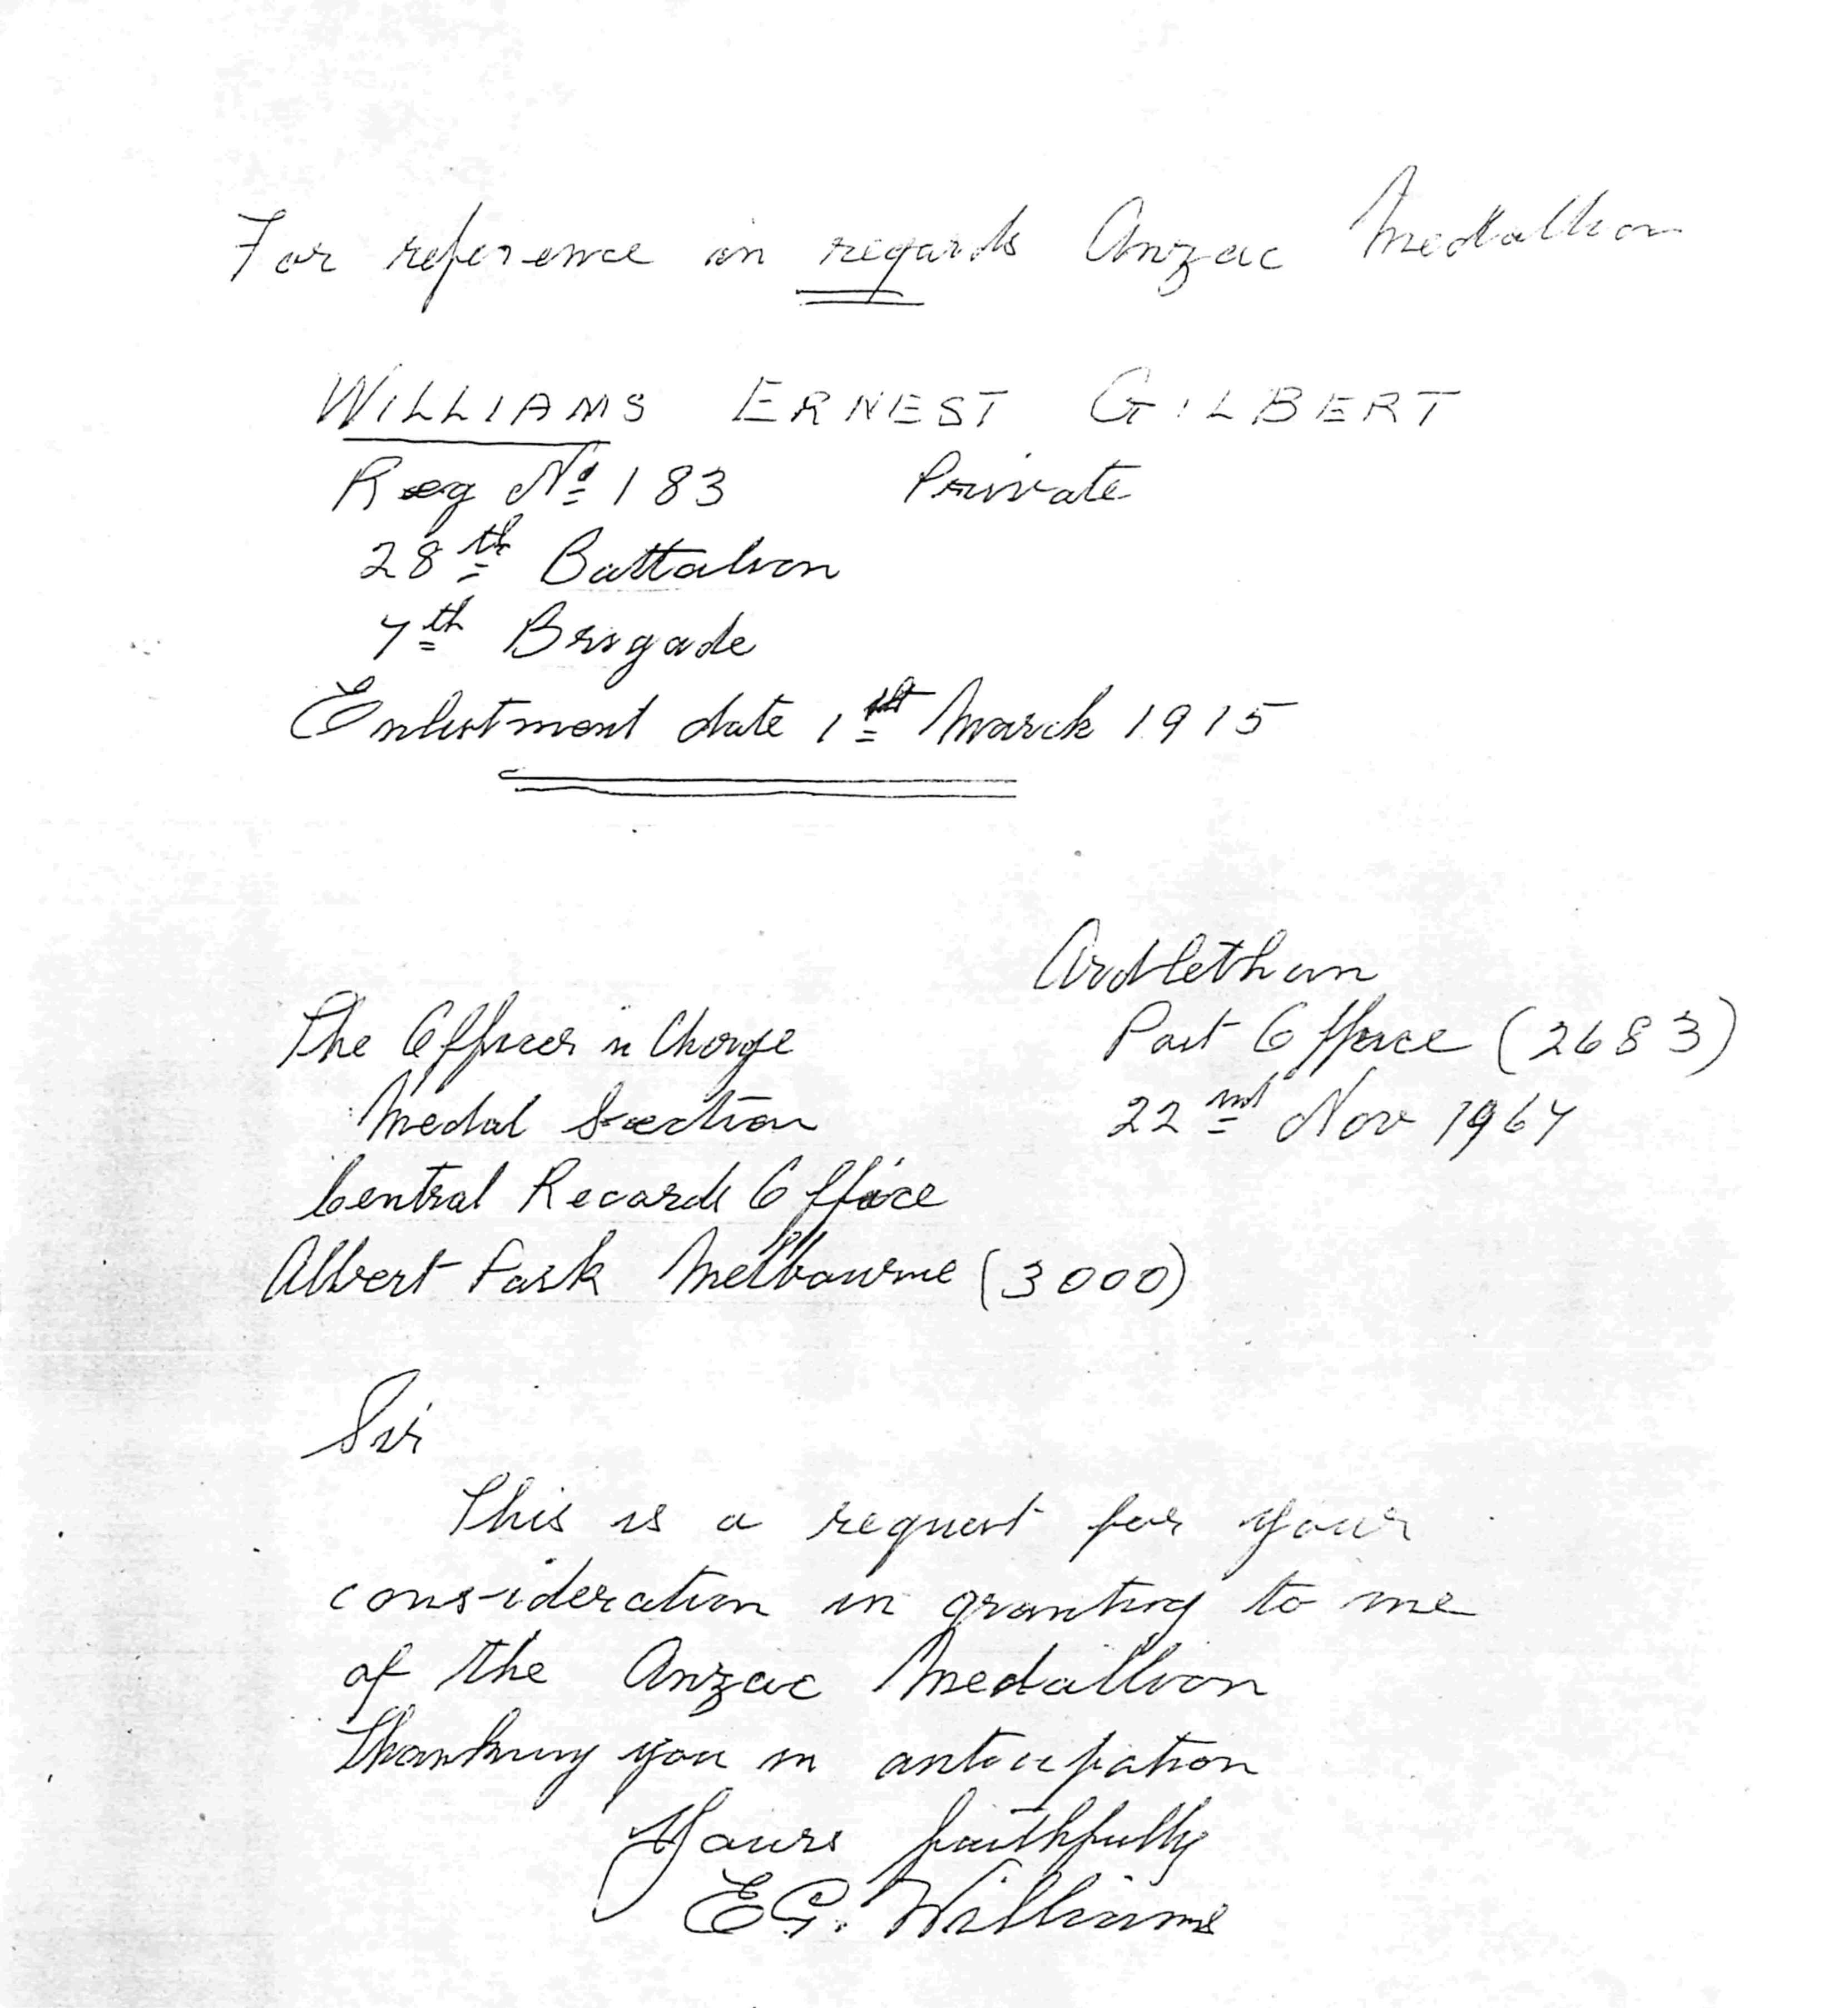 For reference in regards Anzac Medallion
WILLIAMS ERNEST GILBERT
Reg No 183 Private
28th Battalion
7th Brigade
Enlistment date 1st March 1915
Ardlethan
The Officer in Charge Post Office (2683)
Medal Section 22nd Nov 1967
Central Records Office
Albert Park Melbourne (3000)
Sir
This is a request for your
consideration in granting to me
of the Anzac Medallion
Thanking you in anticipation
Yours faithfully
E G. Williams